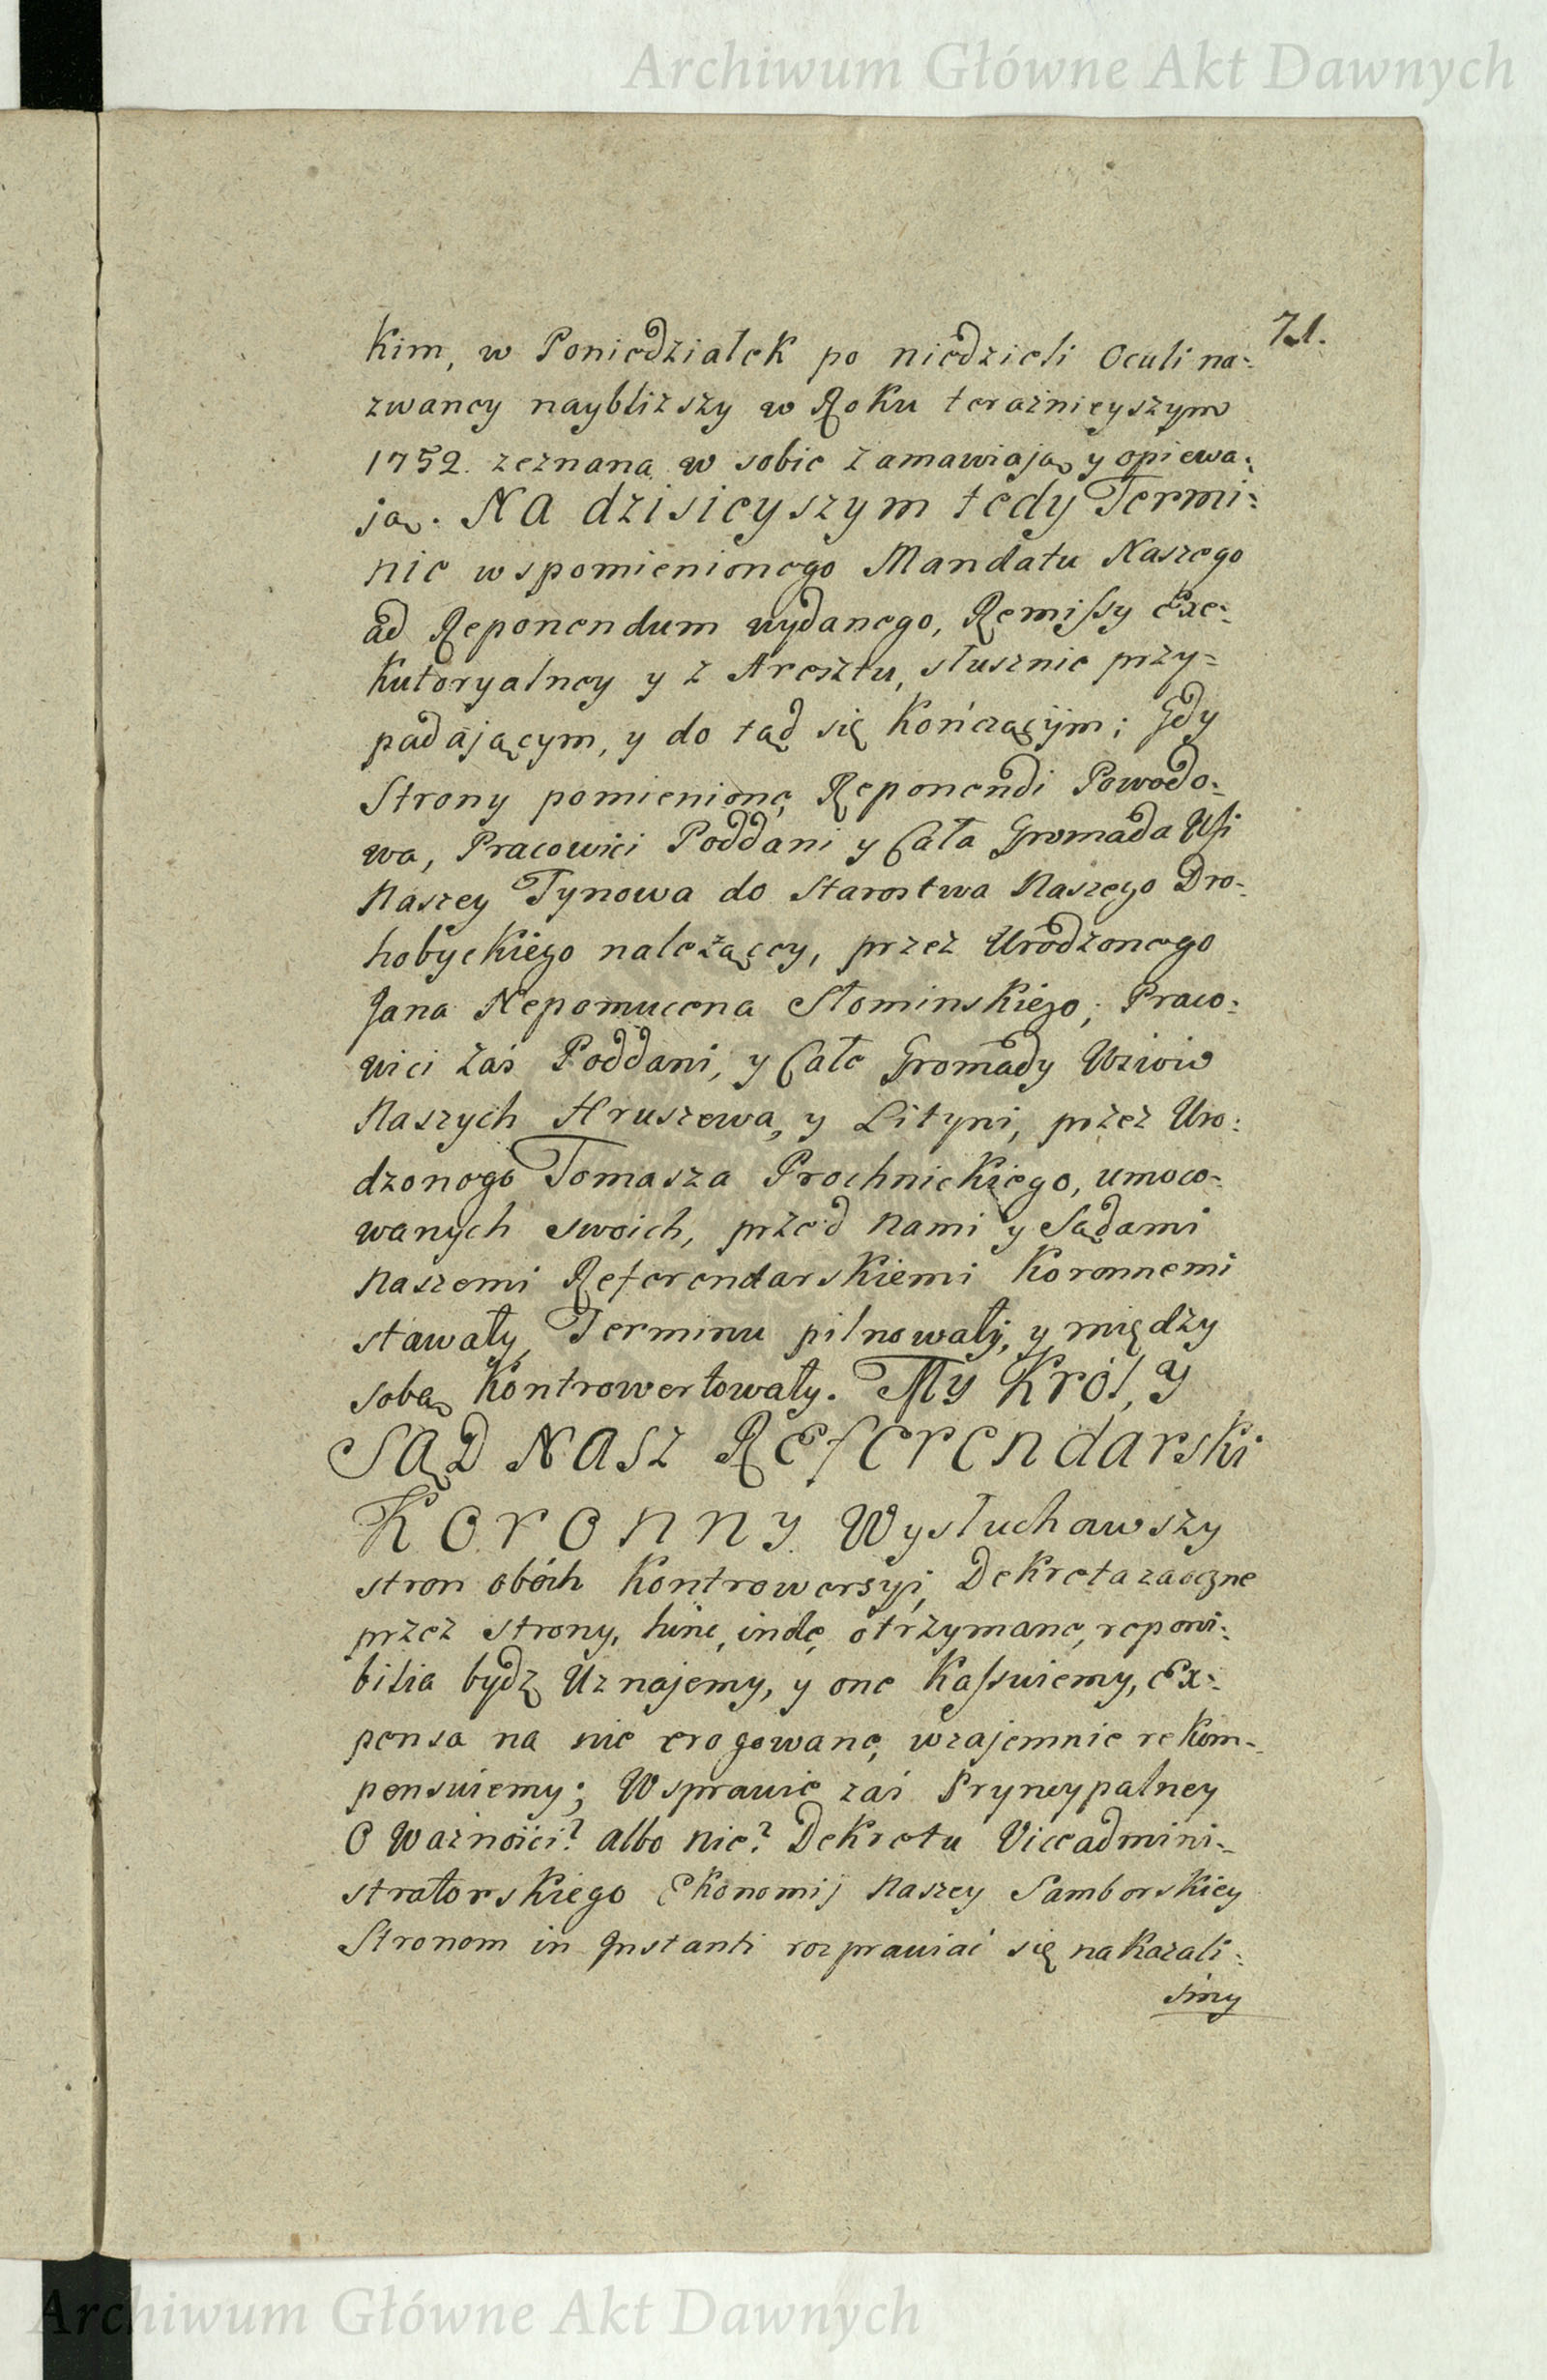 Archiwum Główne Akt Dawnych
71.
Kim, w Poniedziałek po niedzieli Oculi na=
zwaney naybliższy w Roku teraźnieyszym
1752. zeznana w sobie zamawiaią y opiewa=
ią. Na dzisieyszym tedy Termi=
nie wspomienionego Mandatu Naszego
ad Reponendum wydanego, Remissy Exe=
Kutoryalney y z Aresztu, słusznie przy=
padaiącym, y do tąd się Kończącym; Gdy
Strony pomienione Reponendi Powodo=
wa, Pracowici Poddani y Cała Gromada Wsi
Naszey Tynowa do Starostwa Naszego Dro=
hobyckiego należącey, przez Urodzonego
Jana Nepomucena Słominskiego; Praco=
wici zaś Poddani, y Całe Gromady Wsiow
Naszych Hruszewa, y Lityni, przez Uro=
dzonego Tomasza Prochnickiego, umoco=
wanych swoich, przed Nami y Sądami
Naszemi Referendarskiemi Koronnemi
stawały, Terminu pilnowały, y między
sobą Kontrowertowały. My Król, y
Sąd Nasz Referendarski
Koronny Wysłuchawszy
stron oboch Kontrowersyi, Dekreta zaoczne
przez strony, hinc, inde, otrzymane, reponi=
bilia bydz Uznajemy, y one Kassuiemy, Ex=
pensa na nie erogowane, wzajemnie rekom=
pensuiemy; W sprawie zaś Pryncypalney
O Ważności? albo nie? Dekretu Viceadmini=
stratorskiego Ekonomij Naszey Samborskiey
Stronom in Instanti rozprawiać się nakazali=
śmy
Archiwum Główne Akt Dawnych